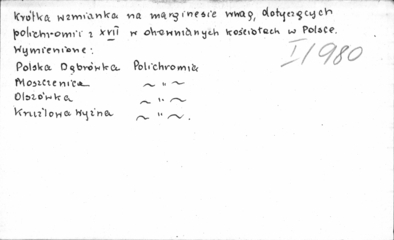 Krótka wzmianka na marginesie uwag, dotyczących
polichromii z XVII w drewnianych kościołach w Polsce.
Wymienione:
I/1980
Polska Dąbrówka Polichromia
Moszczenica ~ " ~
Olszówka ~ " ~
Krużlowa Wyżna ~ " ~.